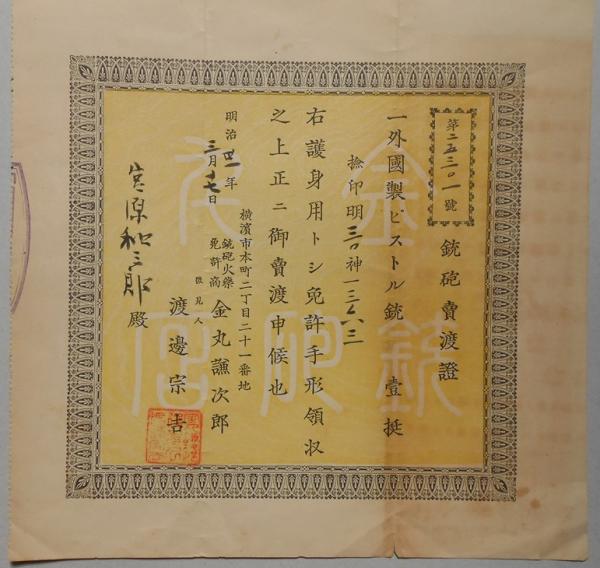 第二五三〇一號
銃砲賣渡證
一外國製ピストル銃 壹挺
撿印明三〇神一三六三
右護身用トシ免許手形領収
之上正ニ御賣渡申候也
明治廿一年
三月十七日
横濱市本町二丁目二十一番地
銃砲火藥
免許商
金丸謙次郎
後見人
渡邊宗吉
宮原和三郎殿